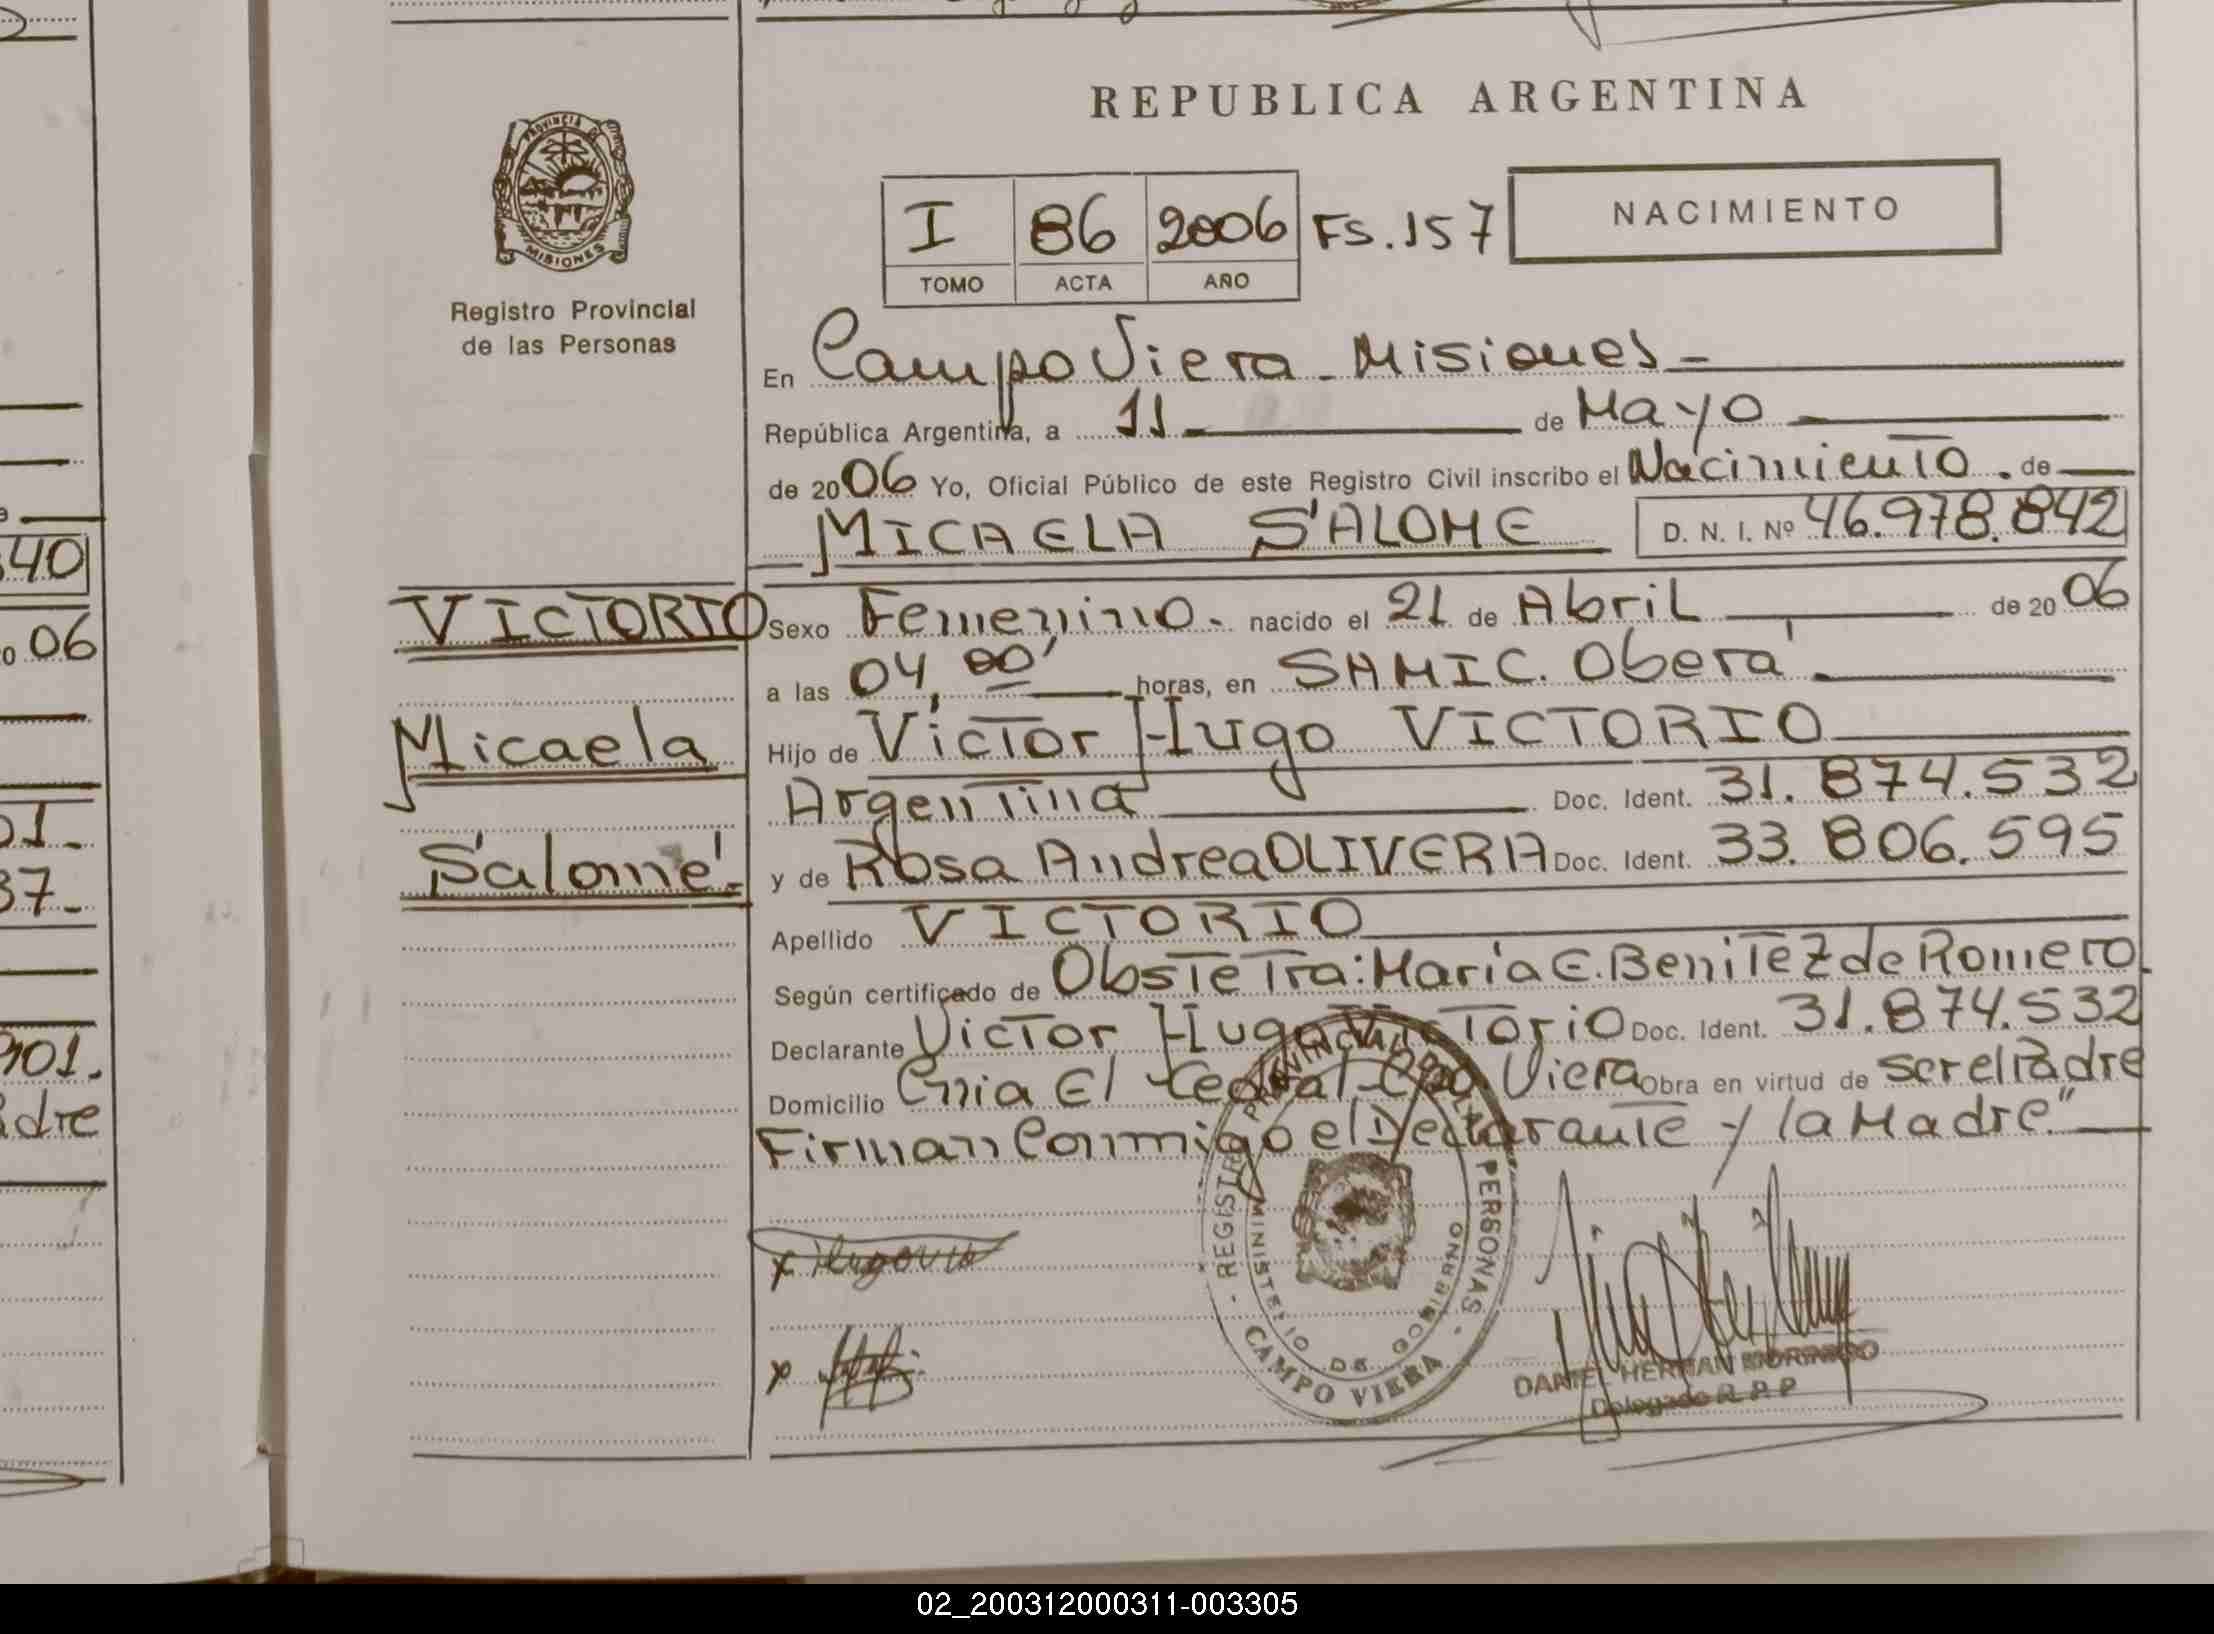 REPUBLICA ARGENTINA
PROVINCIA DE
MISIONES
Registro Provincial
de las Personas
I 86 2006 FS.157
TOMO ACTA AÑO
NACIMIENTO
En Campo Viera - Misiones -
República Argentina, a 11 - de Mayo
de 2006 Yo, Oficial Público de este Registro Civil inscribo el Nacimiento. de
MICAELA SALOME D. N. I. Nº 46.978.842
VICTORIO
Micaela
Salomé -
Sexo Femenino - nacido el 21 de Abril de 2006
a las 04,00' horas, en SAMIC. Oberá
Hijo de Victor Hugo VICTORIO
Argentina Doc. Ident. 31.874.532
y de Rosa Andrea OLIVERA Doc. Ident. 33.806.595
Apellido VICTORIO
Según certificado de Obstetra: María E. Benitez de Romero.
Declarante Victor Hugo Victorio Doc. Ident. 31.874.532
Domicilio Cnia El Cedral - Cpo. Viera Obra en virtud de ser el Padre
Firman Conmigo el Declarante y la Madre."
REGISTRO PROVINCIAL PERSONAS
MINISTERIO DE GOBIERNO
CAMPO VIERA
x Hugo
x
DANIEL HERNAN
Delegado R.P.P
40
06
01.
37-
901.
adre
02_200312000311-003305